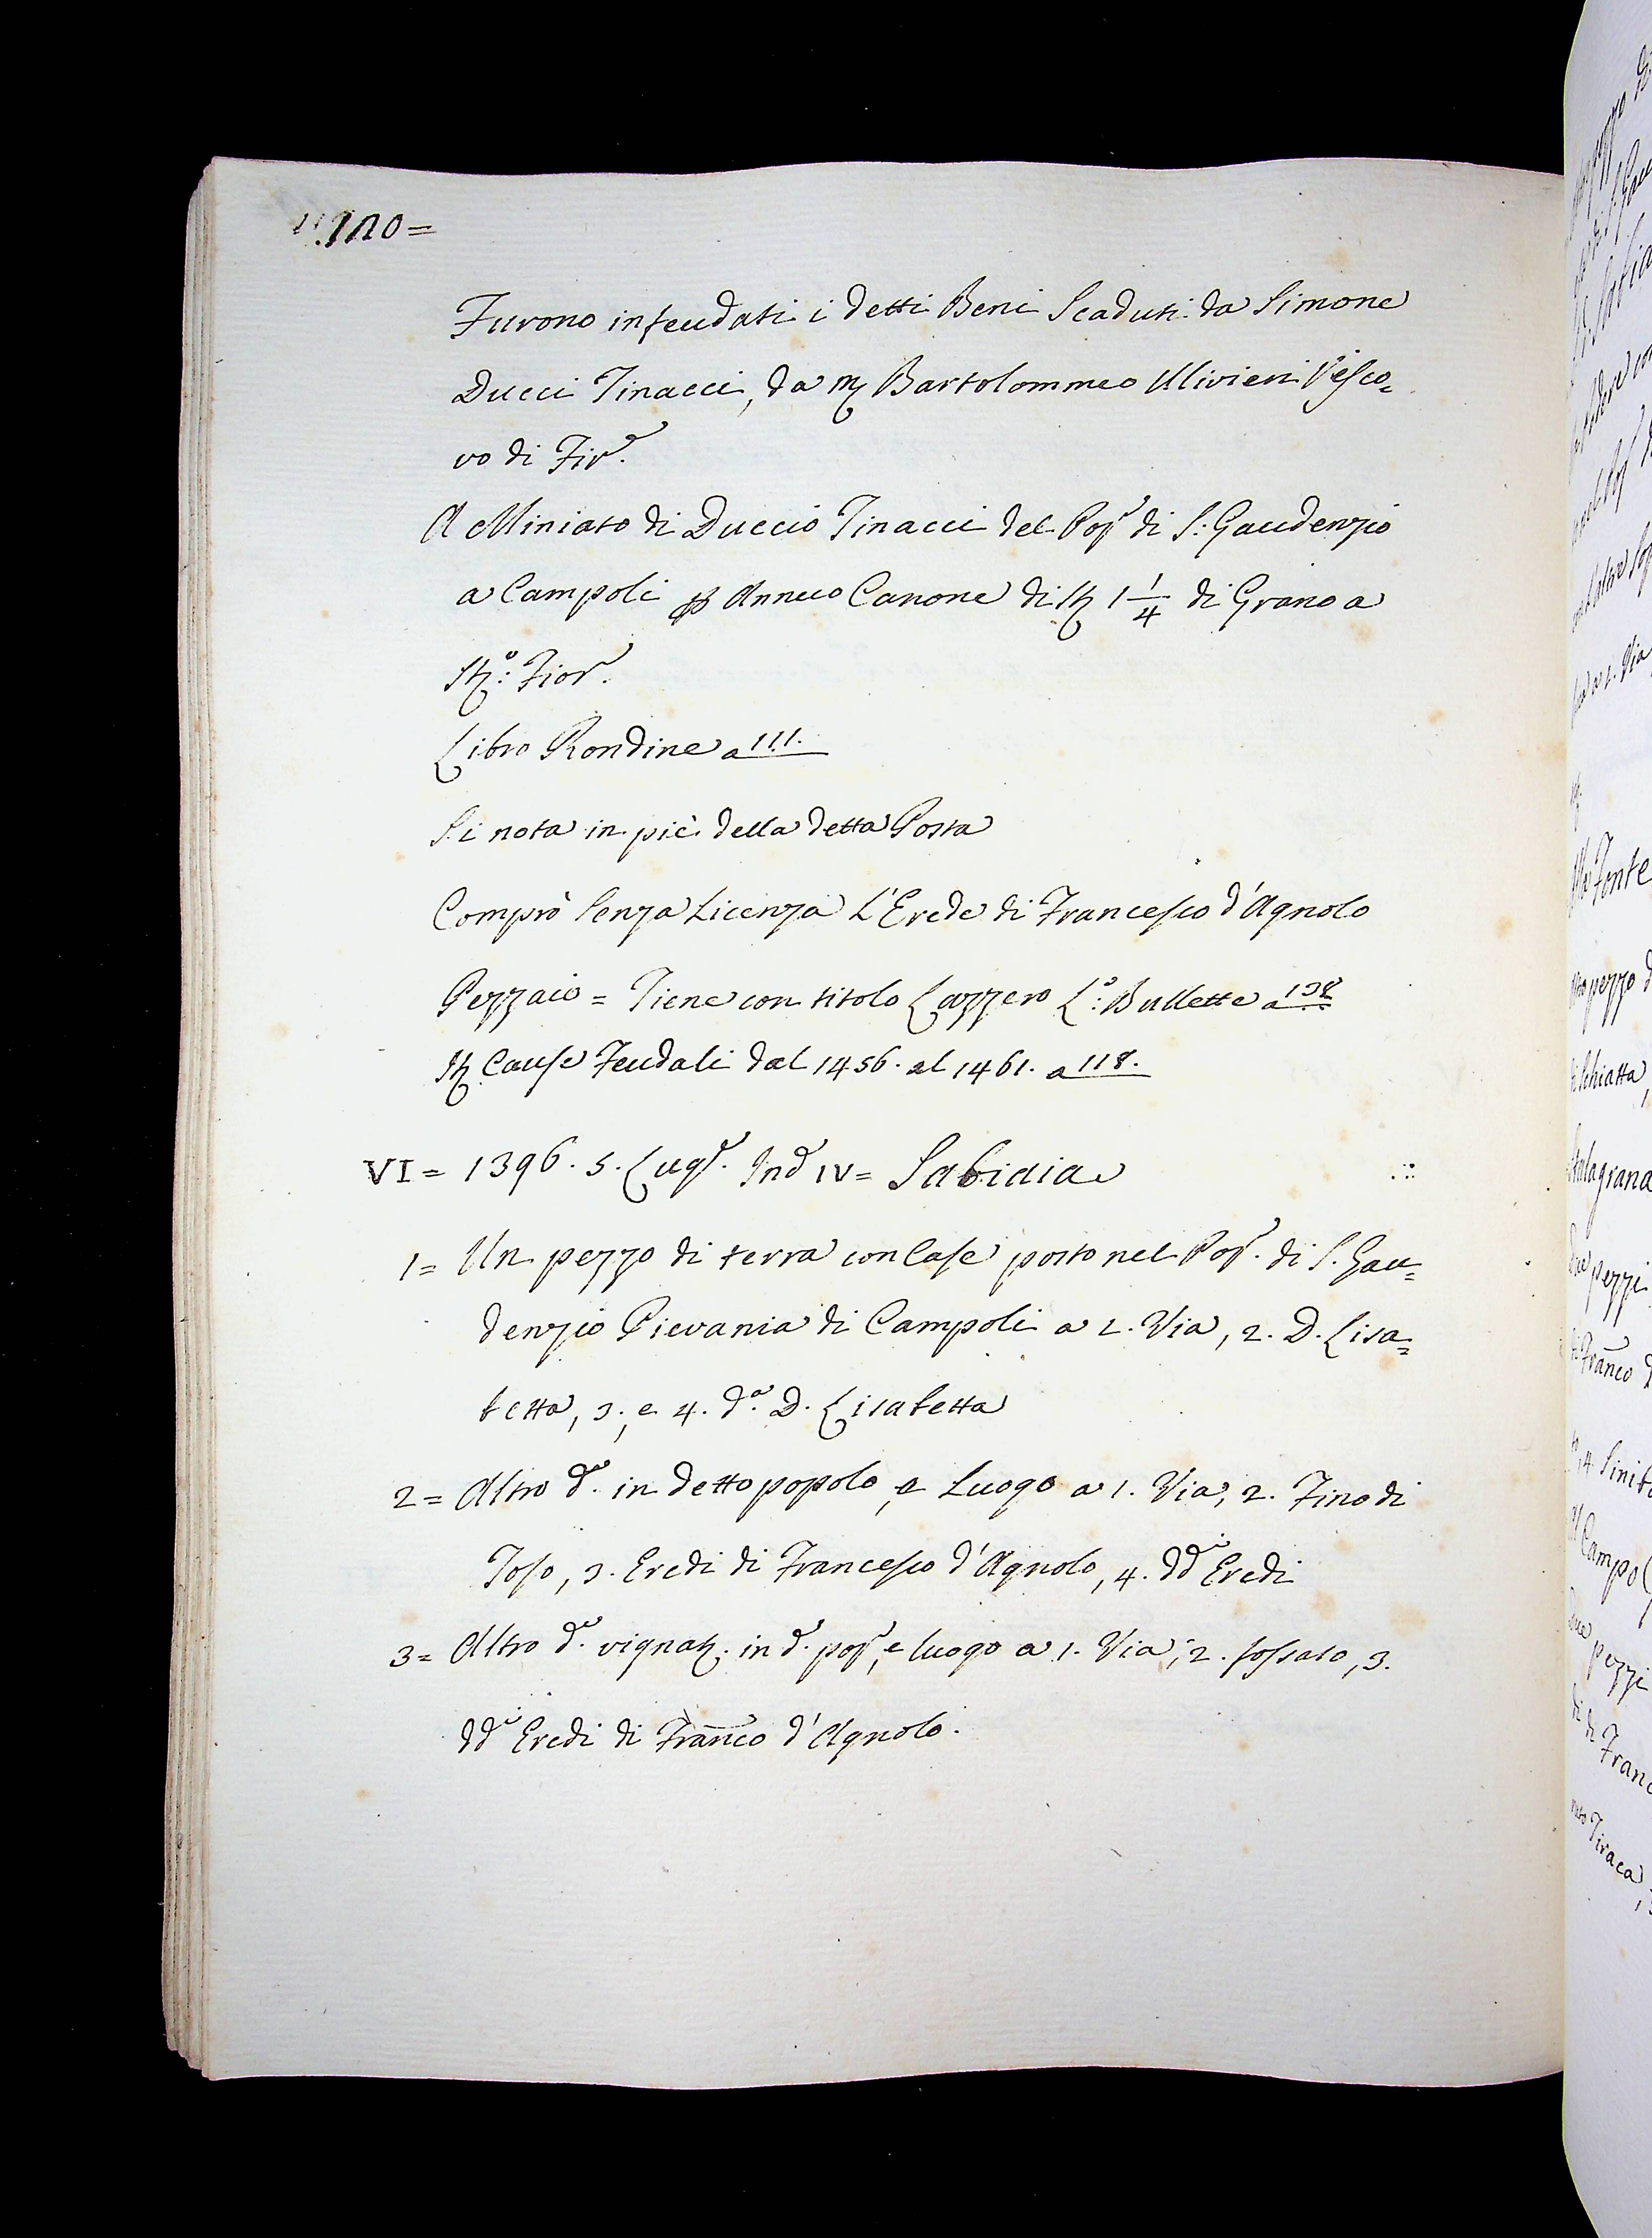 Furono infeudati i detti Beni Scaduti da Simone
Ducci Tinacci, da M Bartolommeo Ulivieri Vesco=
vo di Fir.e
A Miniato di Duccio Tinacci del Pop.o di S. Gaudenzio
a Campoli p Annuo Canone di St 1 1/4 di Grano a
St.o Fior.o
Libro Rondine a 111.
Si nota in piè della detta Posta
Comprò Senza Licenza L'Erede di Francesco d'Agnolo
Pezzaio = Tiene con titolo Lazzero L.o Bullette a 138
St Cause Feudali dal 1456. al 1461. a 118.
VI = 1396. 5. Lug.o Ind IV = Sabidia
1 = Un pezzo di terra con Case posto nel Pop.o di S. Gau=
denzio Pievania di Campoli a 1. Via, 2. D. Lisa=
betta, 3., e 4. d.a D. Lisabetta
2 = Altro d.o in detto popolo, e Luogo a 1. Via, 2. Tino di
Toso, 3. Eredi di Francesco d'Agnolo, 4. dd.i Eredi
3 = Altro d.o vignat. in d.o pop.o, e luogo a 1. Via, 2. fossato, 3.
dd.i Eredi di Franco d'Agnolo.